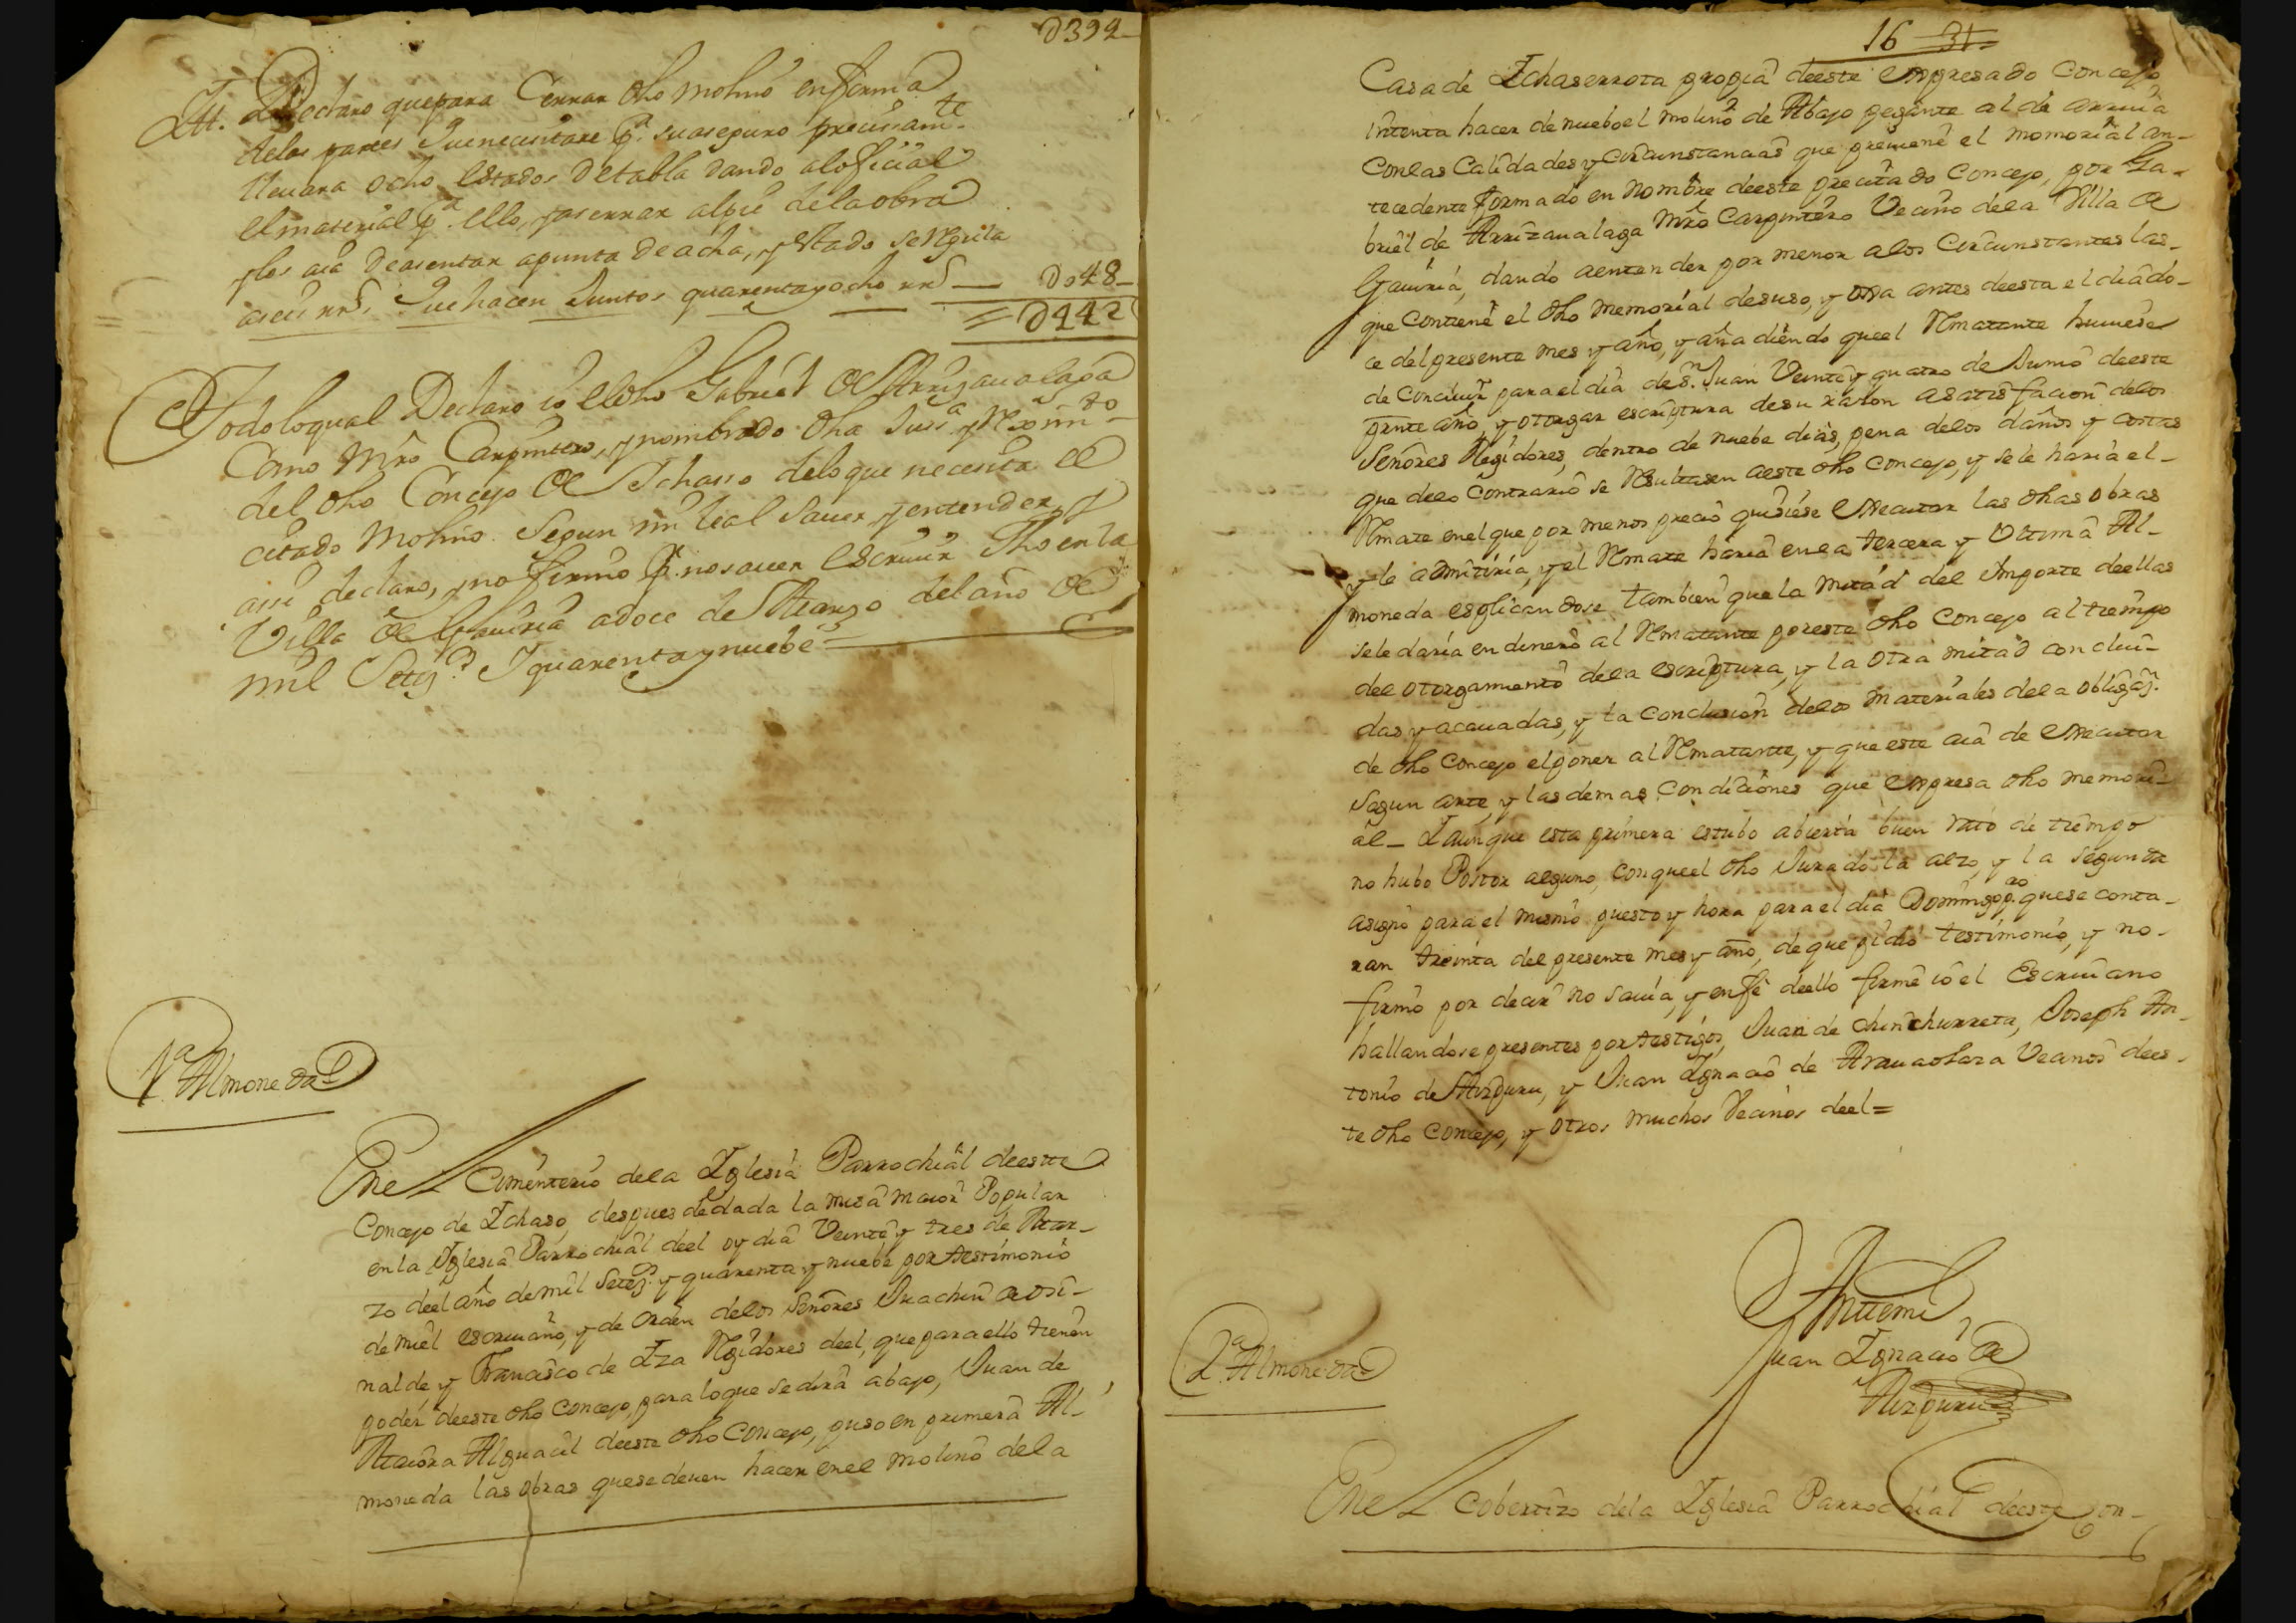 D394
Itt. Declaro que para Cerrar dho molino en forma
delos parttes que necesitare pª. su aseguro precisamte.
lleuara ocho estados de tabla dando al oficial
el material pª. ello, y aserrar al pie dela obra
y los aia de asentar apunta de acha, y estado se regula
a seis rrs. que hacen Juntos quarenta y ocho rrs — Do48
D442
Todo loqual Declaro io el dho Gabriel de Arrizaualaga
Como Mro Carpintero, y nombrado dha
del dho Concejo de Ichasso delo que necesita el
citado Molino Segun mi leal Sauer y entender, y
assi declaro, y no firmo pr. no sauer escriuir fho en la
Villa de Gauiria a doce de Marzo del año de
mil Setezs. y quarenta y nuebe =
1ª Almoneda
En el Cimenterio dela Iglesia Parrochial deeste
Concejo de Ichaso, despues de dada la misa maior Popular
en la Iglesia Parrochial deel oy dia Veinte y tres de Mar-
zo deel año de mil Setezs. y quarenta y nuebe por testimonio
de mi el escriuano, y de orden delos Señores Juachin de osi-
nalde, y Francisco de Iza Regidores deel, que para ello tienen
poder deeste dho Concejo, para loque se dira abajo, Juan de
Maiora Alguacil deeste dho Concejo, puso en primera Al-
moneda las obras que se deuen hacer en el molino dela
16 31
Casa de Ichaserrota propia deeste expresado Concejo
intenta hacer de nuebo el molino de Abajo pegante al de arriua
Con las Calidades y circunstancias que preuiene el memorial an-
tecedente formado en nombre deeste precitado Concejo, por Ga-
briel de Arrizaualaga Mro Carpintero Vecino dela Villa de
Gauiria, dando a entender por menor alos Circunstantes las
que contiene el dho memorial desuso, y otra antes deesta el dia do-
ce del presente mes y año, y añadiendo que el Rematante huuiese
de concluir para el dia de Sn. Juan Veinte y quatro de Junio deeste
prnte año, y otorgar escriptura de su razon a satisfacion delos
Señores Regidores, dentro de nuebe dias, pena delos daños y costas
que delo contrario se Resultasen a este dho concejo, y se le haria el
Remate en el que por menos precio quisiese executar las dhas obras
y le admitiria, y el Remate haria en la tercera y Vltima Al-
moneda esplicandose tambien que la mitad del importe deellas
se le daria en dinero al Rematante por este dho Concejo al tiempo
del otorgamiento dela escriptura, y la otra mitad conclui-
das y acauadas, y la conclusion delos materiales dela obligazn.
de dho Concejo el poner al Rematante, y que este aia de executar
segun arte, y las demas condiciones que expresa dho memori-
al — I aunque esta primera estubo abierta buen rato de tiempo
no hubo Postor alguno, con que el dho Jurado la alzo, y la segunda
asigno para el mismo puesto y hora para el dia Domingo pro. que se conta-
ran treinta del presente mes y año, de que pidio testimonio, y no
firmo por decir no sauia, y en fe deello firme io el Escriuano
hallandose presentes por testigos, Juan de chinchurreta, Joseph An-
tonio de Aizpuru, y Juan Ignacio de Vecinos dees-
te dho Concejo, y otros muchos Vecinos deel =
Antemi
Juan Ignacio de
Aizpuru
2ª Almoneda
En el Cobertizo dela Iglesia Parrochial deeste Con-